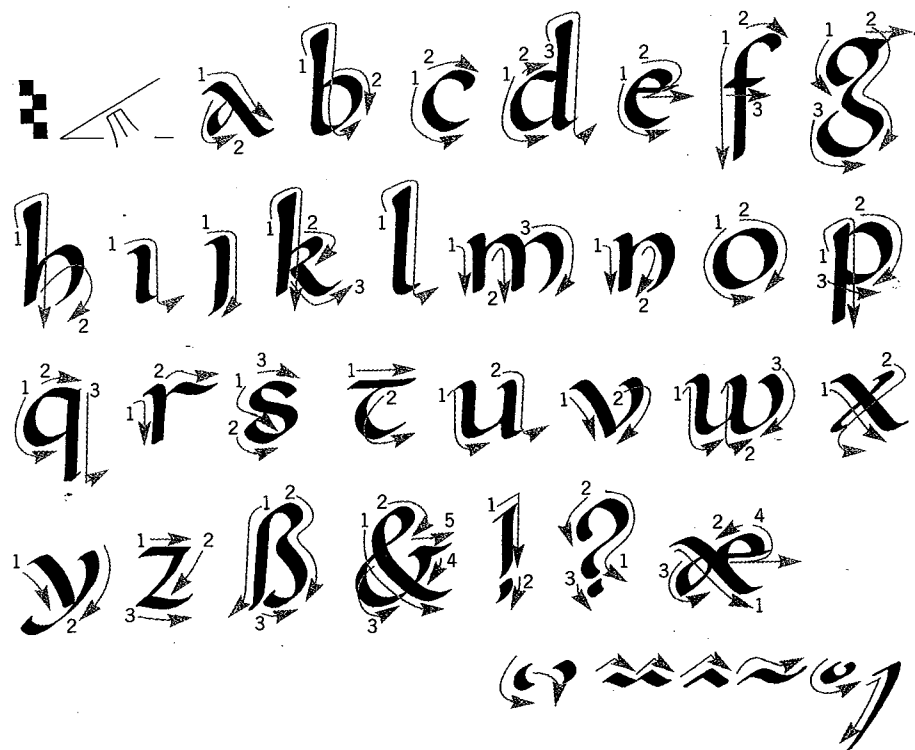 a b c d e f g
h ı ȷ k l m n o p
q r s τ u v w x
y z ß & ! ? æ